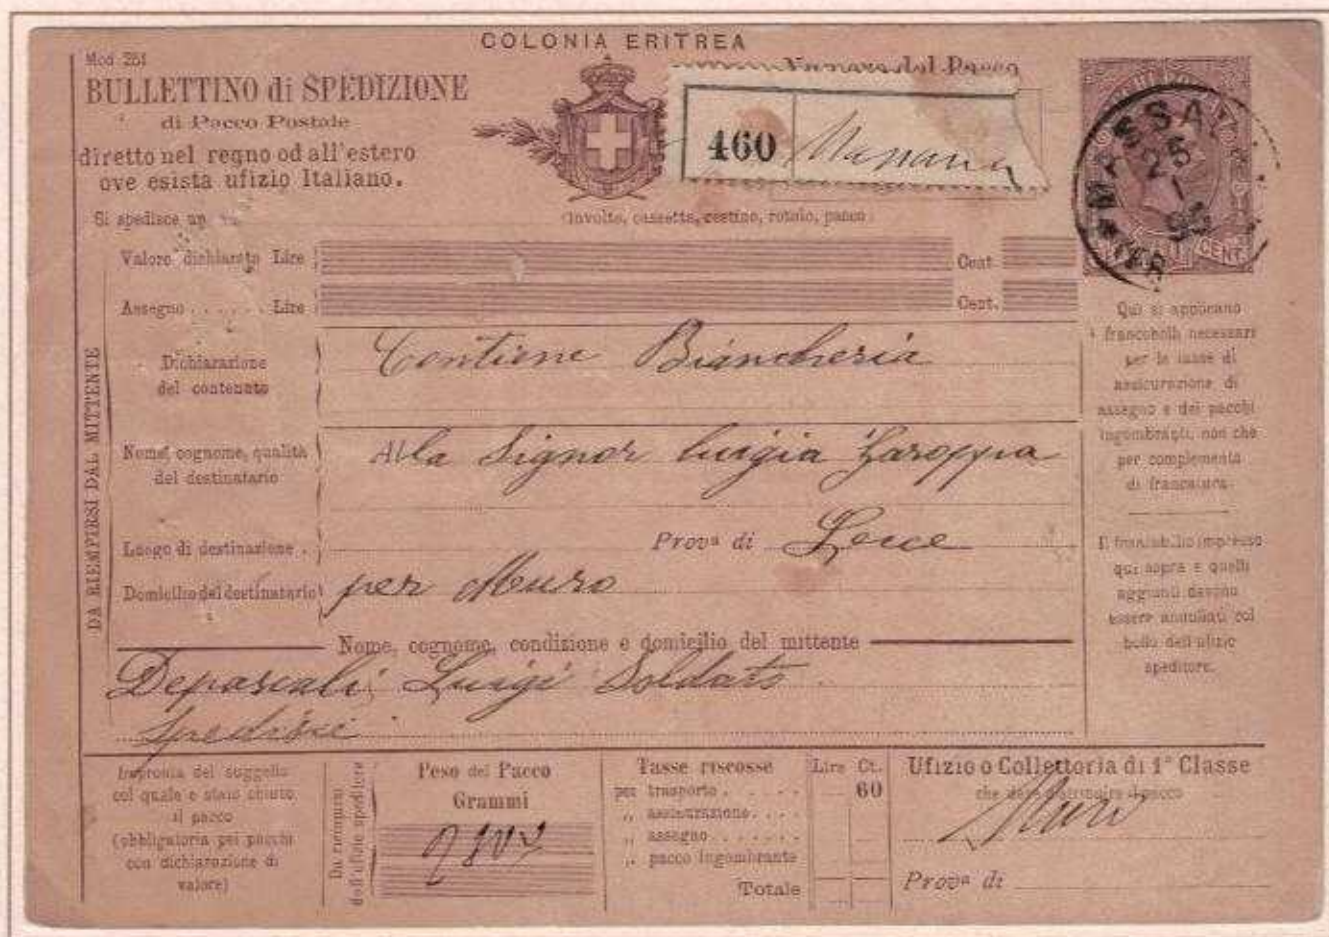 COLONIA ERITREA
Mod 261
BULLETTINO di SPEDIZIONE
di Pacco Postale
diretto nel regno od all'estero
ove esista ufizio Italiano.
del Pacco
460
MASSAU
25
1
CENT.
Si spedisce un
(involto, cassetta, cestino, rotolo, pacco)
Valore dichiarato Lire
Cent.
Assegno . . . . . . Lire
Cent.
DA RIEMPIRSI DAL MITTENTE
Dichiarazione
del contenuto
Contiene Biancheria
Nome, cognome, qualità
del destinatario
Alla Signor Luigia Zaroppia
Luogo di destinazione .
Prov.ª di Lecce
Domicilio del destinatario
per Muro
Nome, cognome, condizione e domicilio del mittente
Depascali Luigi Soldato
spedisce
Qui si appongano
i francobolli necessari
per le tasse di
assicurazione di
assegno e dei pacchi
ingombranti, non che
per complemento
di francatura.
Il francobollo impresso
qui sopra e quelli
aggiunti devono
essere annullati col
bollo dell'ufizio
speditore.
Impronta del suggello
col quale è stato chiuso
il pacco
(obbligatoria pei pacchi
con dichiarazione di
valore)
Da riempirsi
dall'ufizio speditore
Peso del Pacco
Grammi
Tasse riscosse
Lire Ct.
per trasporto . . . . . 60
„ assicurazione . . . .
„ assegno . . . . . . .
„ pacco ingombrante
Totale
Ufizio o Collettoria di 1ª Classe
che deve distribuire il pacco
Muro
Prov.ª di